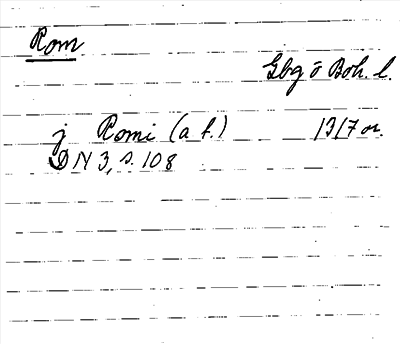 Rom
Gbg o Boh. l.
j Romi (a f.) 1317 or.
DN 3, s. 108